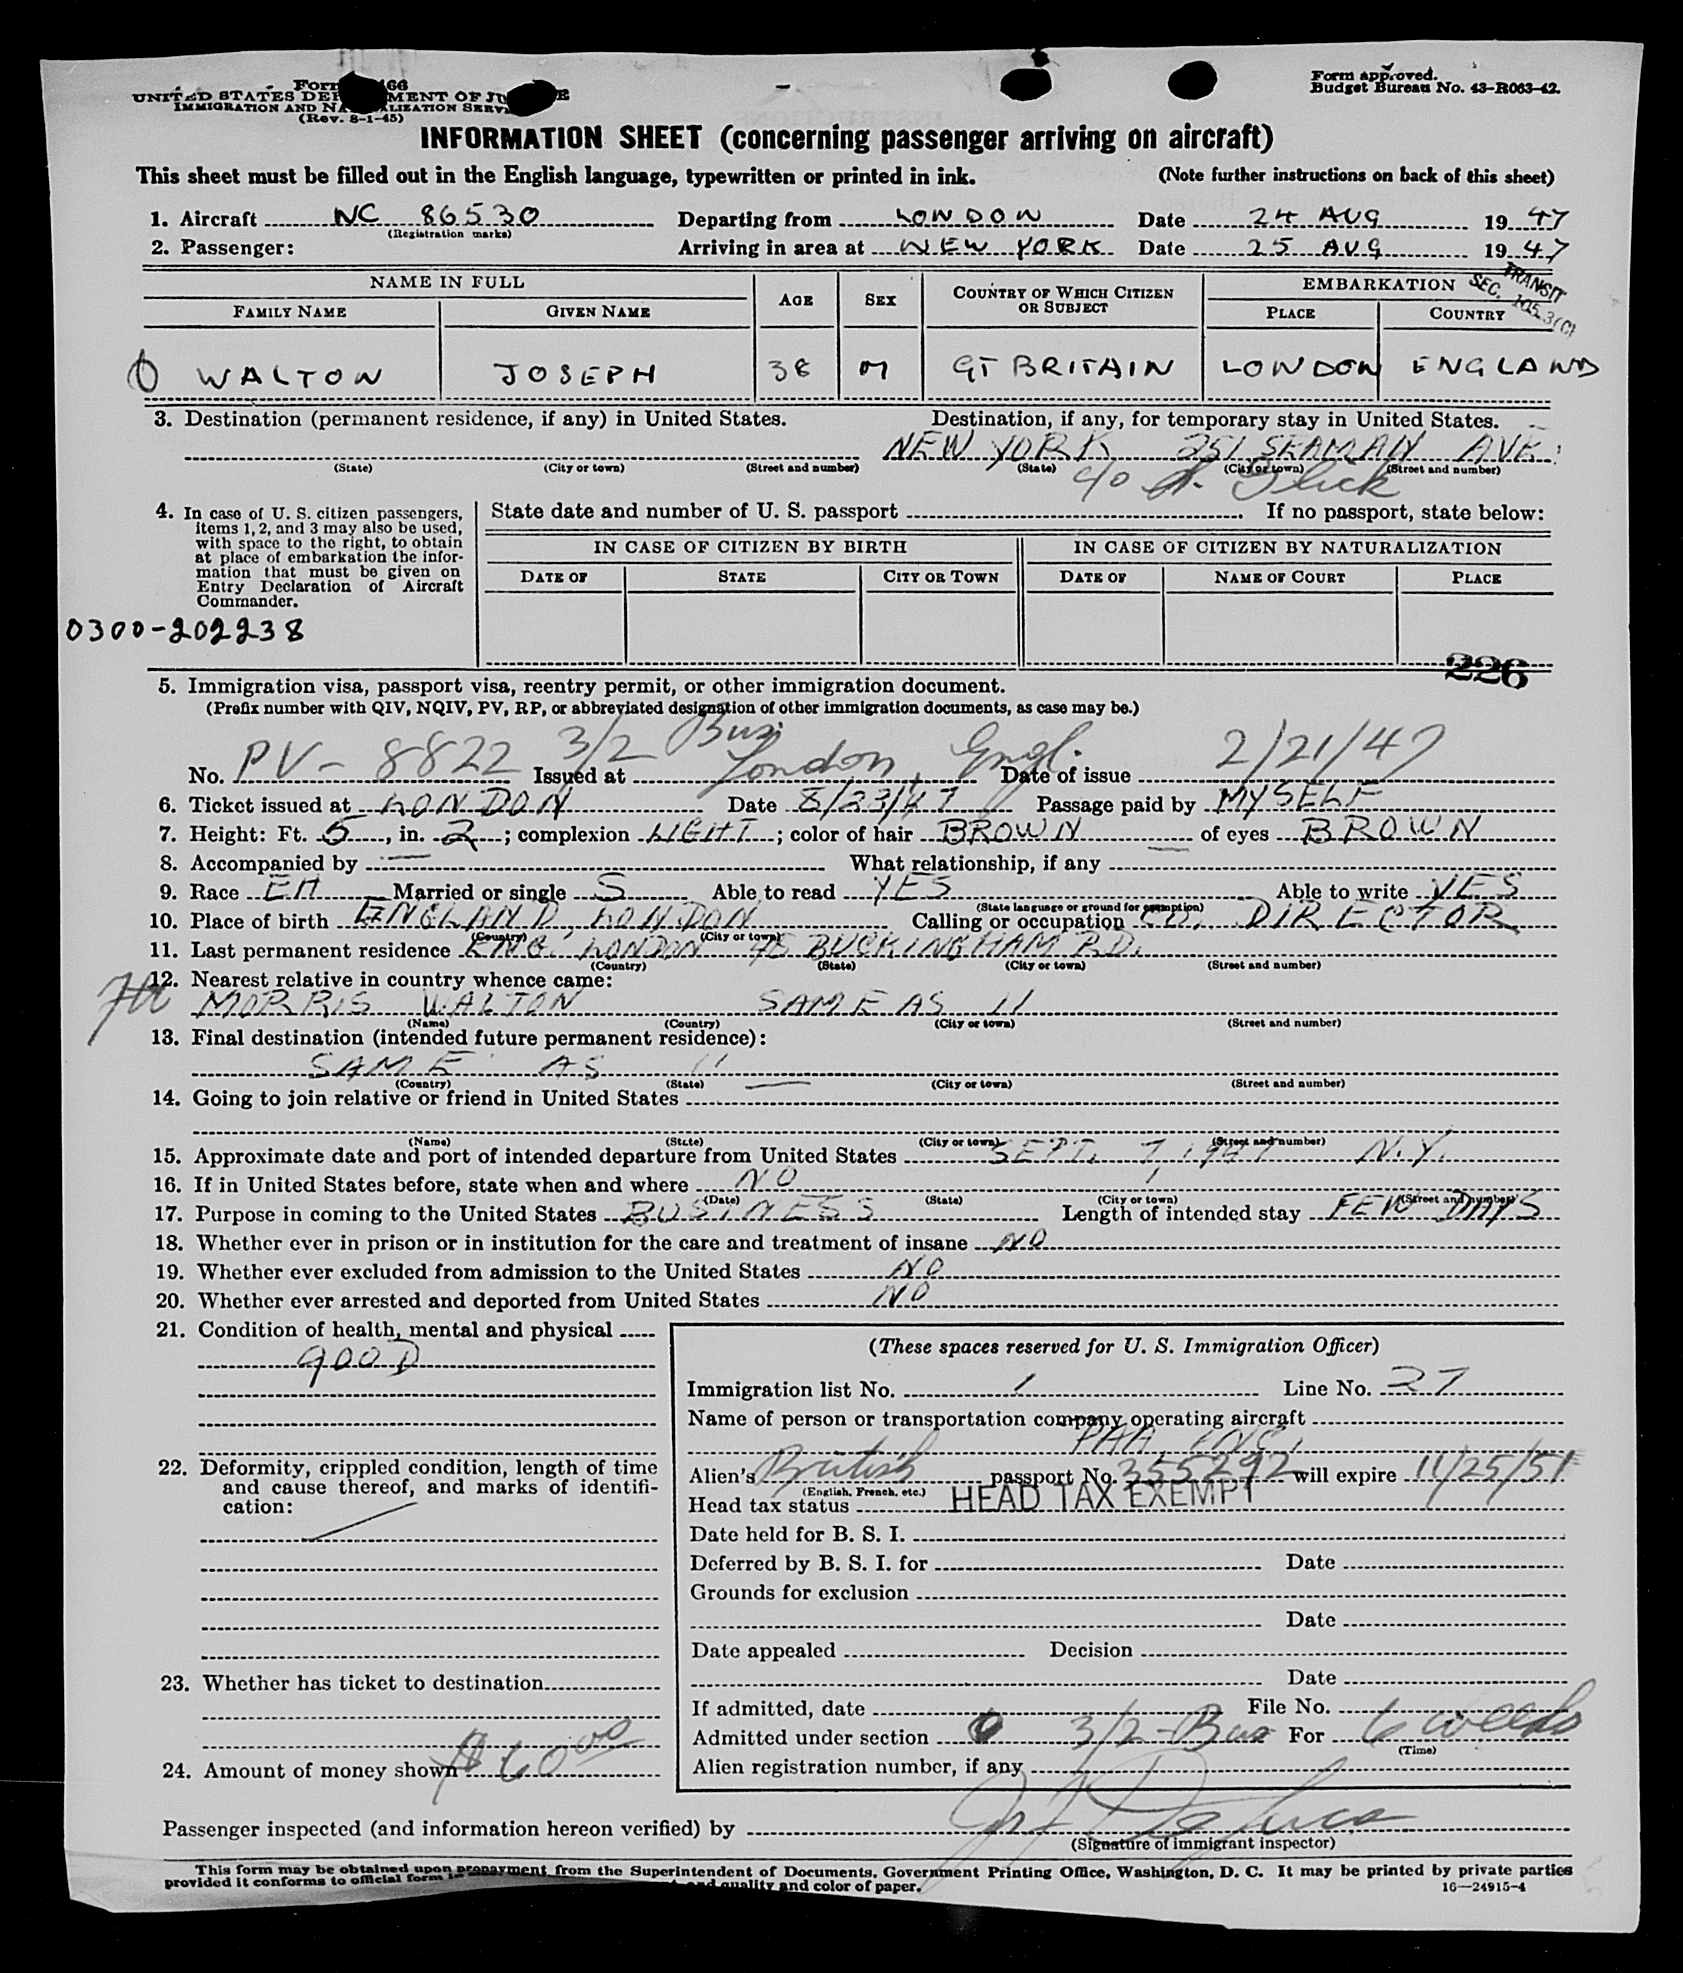 Form 66
UNITED STATES DEPARTMENT OF JUSTICE
IMMIGRATION AND NATURALIZATION SERVICE
(Rev. 8-1-45)
Form approved.
Budget Bureau No. 43-R063-42.
INFORMATION SHEET (concerning passenger arriving on aircraft)
This sheet must be filled out in the English language, typewritten or printed in ink. (Note further instructions on back of this sheet)
1. Aircraft NC 86530 Departing from LONDON Date 24 AUG 1947
(Registration marks)
2. Passenger: Arriving in area at NEW YORK Date 25 AUG 1947
TRANSIT
SEC. 105.3(C)
NAME IN FULL AGE SEX COUNTRY OF WHICH CITIZEN OR SUBJECT EMBARKATION
FAMILY NAME GIVEN NAME PLACE COUNTRY
WALTON JOSEPH 38 M GT BRITAIN LONDON ENGLAND
3. Destination (permanent residence, if any) in United States. Destination, if any, for temporary stay in United States.
NEW YORK 251 SEAMAN AVE.
(State) (City or town) (Street and number) (State) (City or town) (Street and number)
c/o A. Glick
4. In case of U. S. citizen passengers, items 1, 2, and 3 may also be used, with space to the right, to obtain at place of embarkation the information that must be given on Entry Declaration of Aircraft Commander.
State date and number of U. S. passport . If no passport, state below:
IN CASE OF CITIZEN BY BIRTH IN CASE OF CITIZEN BY NATURALIZATION
DATE OF STATE CITY OR TOWN DATE OF NAME OF COURT PLACE
0300-202238
226
5. Immigration visa, passport visa, reentry permit, or other immigration document.
(Prefix number with QIV, NQIV, PV, RP, or abbreviated designation of other immigration documents, as case may be.)
3/2 Bus.
No. PV-8822 Issued at London, Engl. Date of issue 2/21/47
6. Ticket issued at LONDON Date 8/23/47 Passage paid by MYSELF
7. Height: Ft. 5, in. 2; complexion LIGHT; color of hair BROWN of eyes BROWN
8. Accompanied by — What relationship, if any —
9. Race EN Married or single S Able to read YES Able to write YES
(State language or ground for exemption)
10. Place of birth ENGLAND, LONDON Calling or occupation CO. DIRECTOR
(Country) (City or town)
11. Last permanent residence ENG. LONDON 45 BUCKINGHAM RD.
(Country) (State) (City or town) (Street and number)
12. Nearest relative in country whence came:
MORRIS WALTON SAME AS 11
(Name) (Country) (City or town) (Street and number)
13. Final destination (intended future permanent residence):
SAME AS 11
(Country) (State) (City or town) (Street and number)
14. Going to join relative or friend in United States —
(Name) (State) (City or town) (Street and number)
15. Approximate date and port of intended departure from United States SEPT. 7, 1947 N.Y.
16. If in United States before, state when and where NO
(Date) (State) (City or town) (Street and number)
17. Purpose in coming to the United States BUSINESS Length of intended stay FEW DAYS
18. Whether ever in prison or in institution for the care and treatment of insane NO
19. Whether ever excluded from admission to the United States NO
20. Whether ever arrested and deported from United States NO
21. Condition of health, mental and physical
GOOD
22. Deformity, crippled condition, length of time and cause thereof, and marks of identification:
23. Whether has ticket to destination
24. Amount of money shown $60.00
(These spaces reserved for U. S. Immigration Officer)
Immigration list No. 1 Line No. 27
Name of person or transportation company operating aircraft
PAA, INC.
Alien's British passport No. 355292 will expire 11/25/51
(English, French, etc.)
Head tax status HEAD TAX EXEMPT
Date held for B. S. I.
Deferred by B. S. I. for Date
Grounds for exclusion
Date
Date appealed Decision
Date
If admitted, date File No.
Admitted under section 3/2-Bus For 6 weeks
(Time)
Alien registration number, if any
Passenger inspected (and information hereon verified) by
(Signature of immigrant inspector)
This form may be obtained upon prepayment from the Superintendent of Documents, Government Printing Office, Washington, D. C. It may be printed by private parties
provided it conforms to official form in and quality and color of paper.
16—24915-4